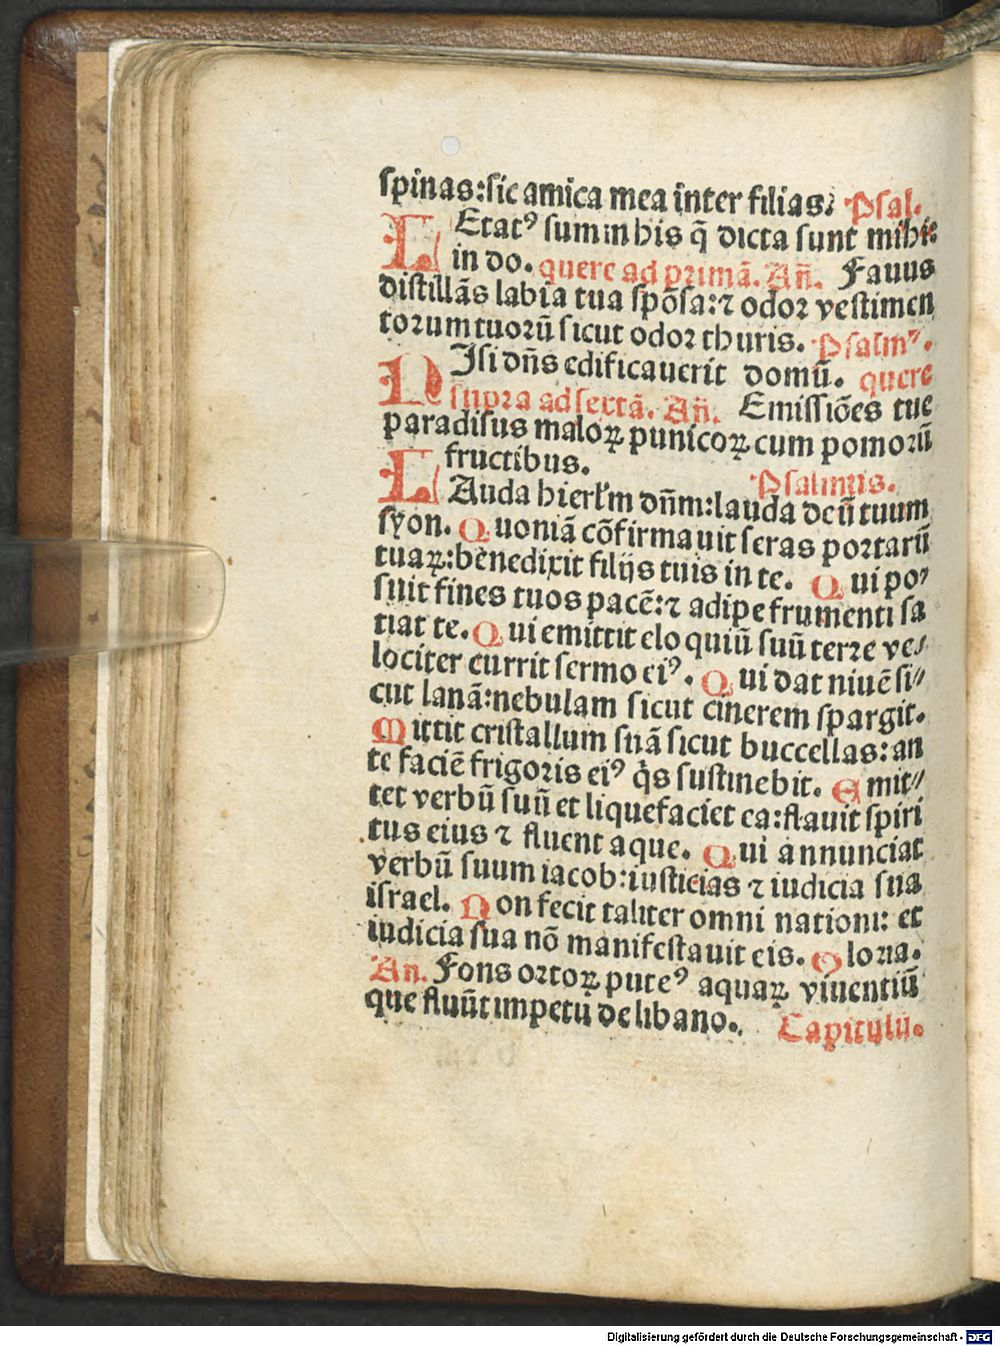 spinas:sic amica mea inter filias. Psal.
LEtatꝰ sum in his q̃ dicta sunt mihi:
in do. quere ad primã. Añ. Fauus
distillãs labia tua spõsa:⁊ odoꝛ vestimen
toꝛum tuoꝛũ sicut odoꝛ thuris. Psalmꝰ.
NIsi dñs edificauerit domũ. quere
supꝛa ad sextã. Añ. Emissiões tue
paradisus maloꝝ punicoꝝ cum pomoꝛũ
fructibus. Psalmus.
LAuda hierłm dñm:lauda deũ tuum
syon. Quoniã cõfirmauit seras poꝛtarũ
tuaꝝ:benedixit filijs tuis in te. Qui poꝰ
suit fines tuos pacẽ:⁊ adipe frumenti sa
tiat te. Qui emittit eloquiũ suũ terꝛe ve⸗
lociter currit sermo eiꝰ. Qui dat niuẽ si⸗
cut lanã:nebulam sicut cinerem spargit.
Mittit cristallum suã sicut buccellas:an
te faciẽ frigoꝛis eiꝰ q̃s sustinebit. Emit⸗
tet verbũ suũ et liquefaciet ea:flauit spiri
tus eius ⁊ fluent aque. Qui annunciat
verbũ suum iacob:iusticias ⁊ iudicia sua
israel. Non fecit taliter omni nationi: et
iudicia sua nõ manifestauit eis. Gloꝛia.
An. Fons oꝛtoꝝ puteꝰ aquaꝝ viuentiũ
que fluũt impetu de libano. Capitulũ.
Digitalisierung gefördert durch die Deutsche Forschungsgemeinschaft - DFG